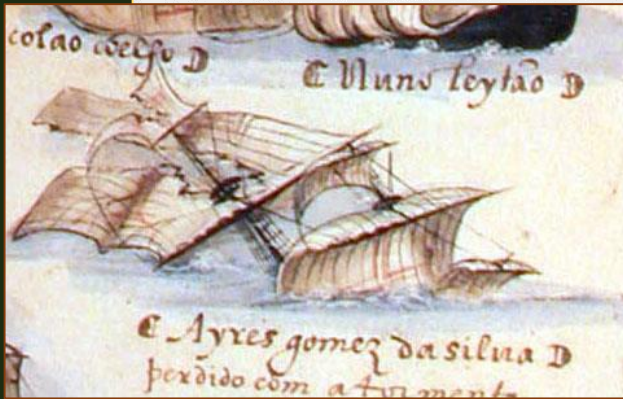 colao coelho D
C Nuno leytão D
C Ayres gomez da silua D
perdido com a tormenta